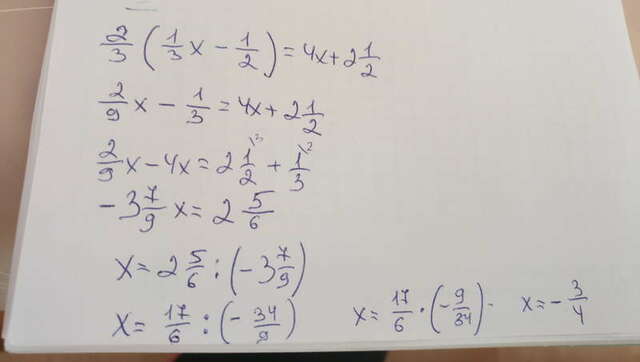 2/3 (1/3 x - 1/2) = 4x + 2 1/2
2/9 x - 1/3 = 4x + 2 1/2
2/9 x - 4x = 2 1/2 \3 + 1/3 \2
- 3 7/9 x = 2 5/6
x = 2 5/6 : (- 3 7/9)
x = 17/6 : (- 34/9)
x = 17/6 · (- 9/34) - x = - 3/4